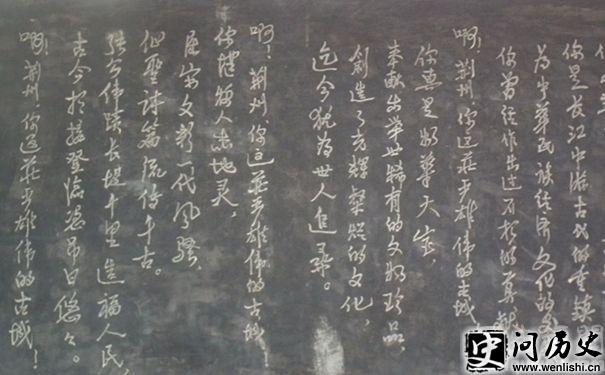 你是长江中游古代的重镇
为中华民族经济文化的发
你曾经作出过不朽的贡献
啊!荆州,你这莊严雄伟的古城
你真是物华天宝,
奉献出举世稀有的文物珍品,
创造了光辉灿烂的文化,
迄今犹为世人追寻。
啊!荆州,你这莊严雄伟的古城
你人杰地灵,
屈宋文彩一代风骚,
诗篇流传千古。
张公伟绩长堤千里造福人民,
古今相接登临凭吊日悠悠。
啊!荆州,你这莊严雄伟的古城!
史问历史
www.wenlishi.cn